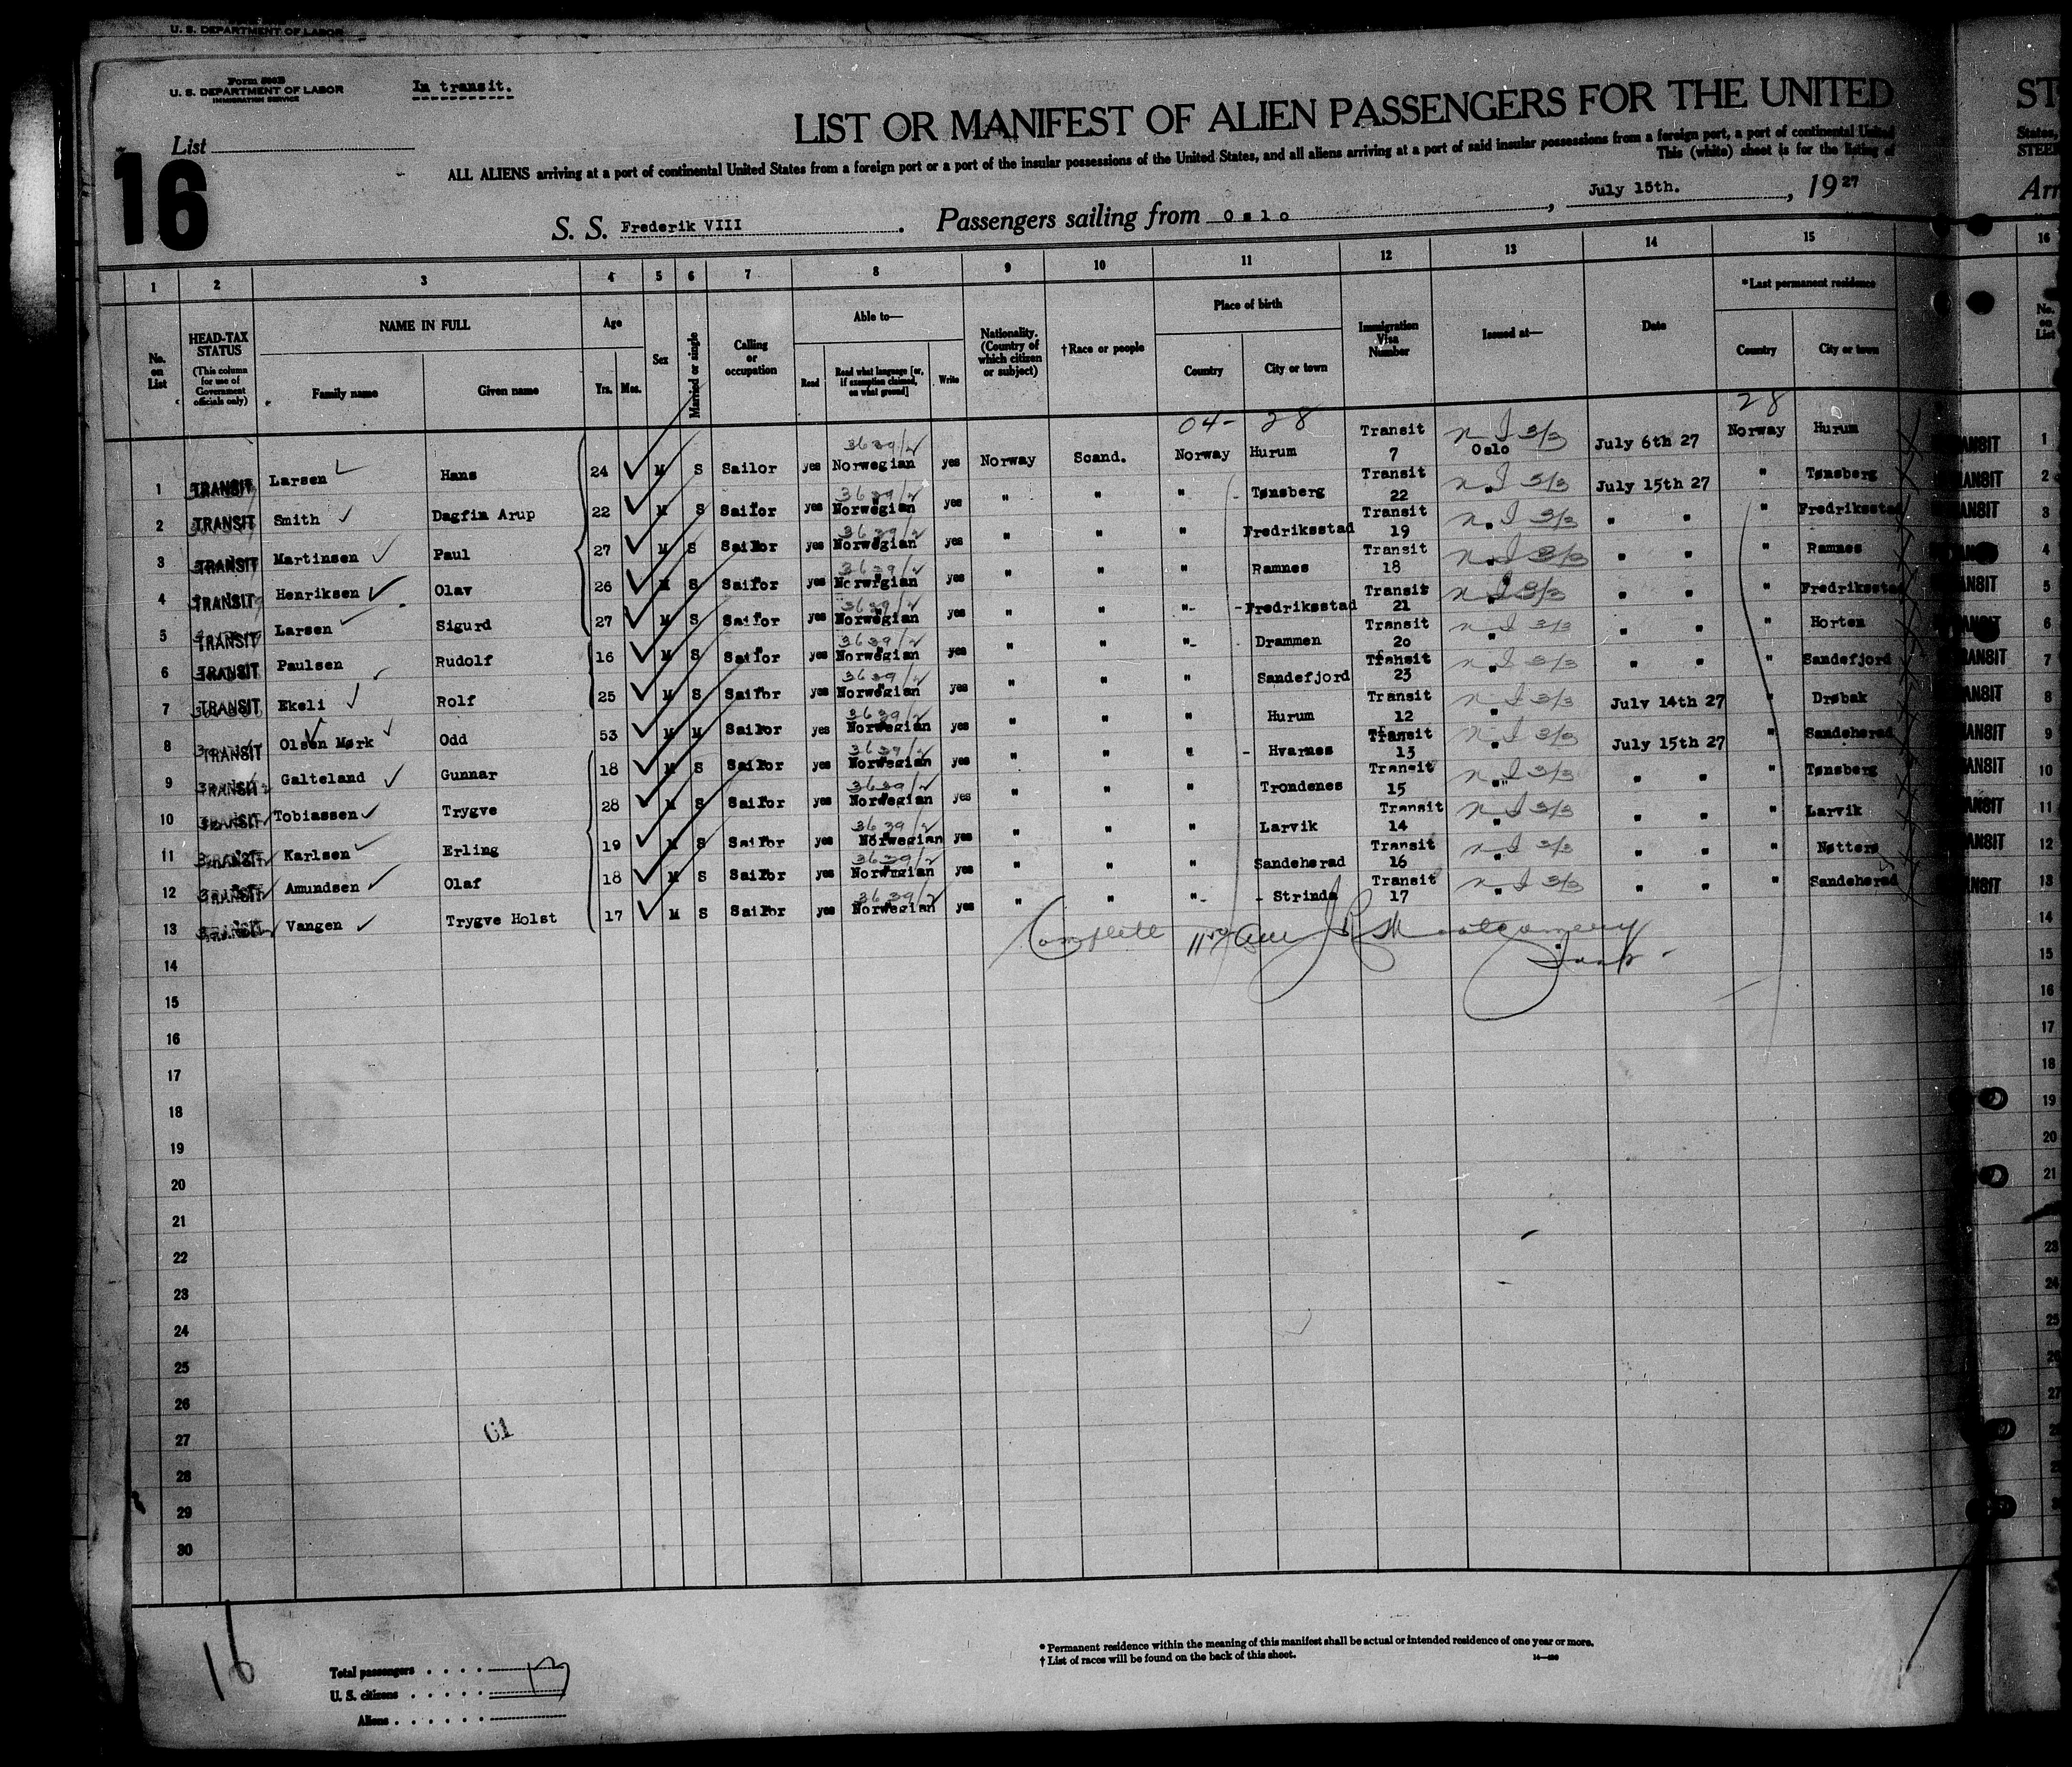 U. S. DEPARTMENT OF LABOR
Form 500B
U. S. DEPARTMENT OF LABOR
IMMIGRATION SERVICE
In transit.
List
16
LIST OR MANIFEST OF ALIEN PASSENGERS FOR THE UNITED ST
ALL ALIENS arriving at a port of continental United States from a foreign port or a port of the insular possessions of the United States, and all aliens arriving at a port of said insular possessions from a foreign port, a port of continental United States,
This (white) sheet is for the listing of
S. S. Frederik VIII. Passengers sailing from Oslo, July 15th., 1927 Arr
1 2 3 4 5 6 7 8 9 10 11 12 13 14 15 16
No. on List
HEAD-TAX STATUS (This column for use of Government officials only)
NAME IN FULL Family name Given name
Age Yrs. Mos.
Sex
Married or single
Calling or occupation
Able to— Read Read what language [or, if exemption claimed, on what ground] Write
Nationality. (Country of which citizen or subject)
†Race or people
Place of birth Country City or town
Immigration Visa Number
Issued at—
Date
*Last permanent residence Country City or town
No. on List
04- 28 28
1 TRANSIT Larsen Hans 24 M S Sailor yes Norwegian yes Norway Scand. Norway Hurum Transit 7 Oslo July 6th 27 Norway Hurum
2 TRANSIT Smith Dagfin Arup 22 M S Sailor yes Norwegian yes " " " Tønsberg Transit 22 " July 15th 27 " Tønsberg
3 TRANSIT Martinsen Paul 27 M S Sailor yes Norwegian yes " " " Fredriksstad Transit 19 " " " " Fredriksstad
4 TRANSIT Henriksen Olav 26 M S Sailor yes Norwrgian yes " " " Ramnes Transit 18 " " " " Ramnes
5 TRANSIT Larsen Sigurd 27 M S Sailor yes Norwegian yes " " " Fredriksstad Transit 21 " " " " Fredriksstad
6 TRANSIT Paulsen Rudolf 16 M S Sailor yes Norwegian yes " " " Drammen Transit 20 " " " " Horten
7 TRANSIT Ekeli Rolf 25 M S Sailor yes Norwegian yes " " " Sandefjord Transit 23 " " " " Sandefjord
8 TRANSIT Olsen Mørk Odd 53 M M Sailor yes Norwegian yes " " " Hurum Transit 12 " July 14th 27 " Drøbak
9 TRANSIT Galteland Gunnar 18 M S Sailor yes Norwegian yes " " " Hvarnes Transit 13 " July 15th 27 " Sandeherad
10 TRANSIT Tobiassen Trygve 28 M S Sailor yes Norwegian yes " " " Trondenes Transit 15 " " " " Tønsberg
11 TRANSIT Karlsen Erling 19 M S Sailor yes Norwegian yes " " " Larvik Transit 14 " " " " Larvik
12 TRANSIT Amundsen Olaf 18 M S Sailor yes Norwegian yes " " " Sandeherad Transit 16 " " " " Nøtterø
13 TRANSIT Vangen Trygve Holst 17 M S Sailor yes Norwegian yes " " " Strinda Transit 17 " " " " Sandeherad
Complete Montgomery
Insp
14
15
16
17
18
19
20
21
22
23
24
25
26
27
28
29
30
16
Total passengers 13
U. S. citizens
Aliens
* Permanent residence within the meaning of this manifest shall be actual or intended residence of one year or more.
† List of races will be found on the back of this sheet.